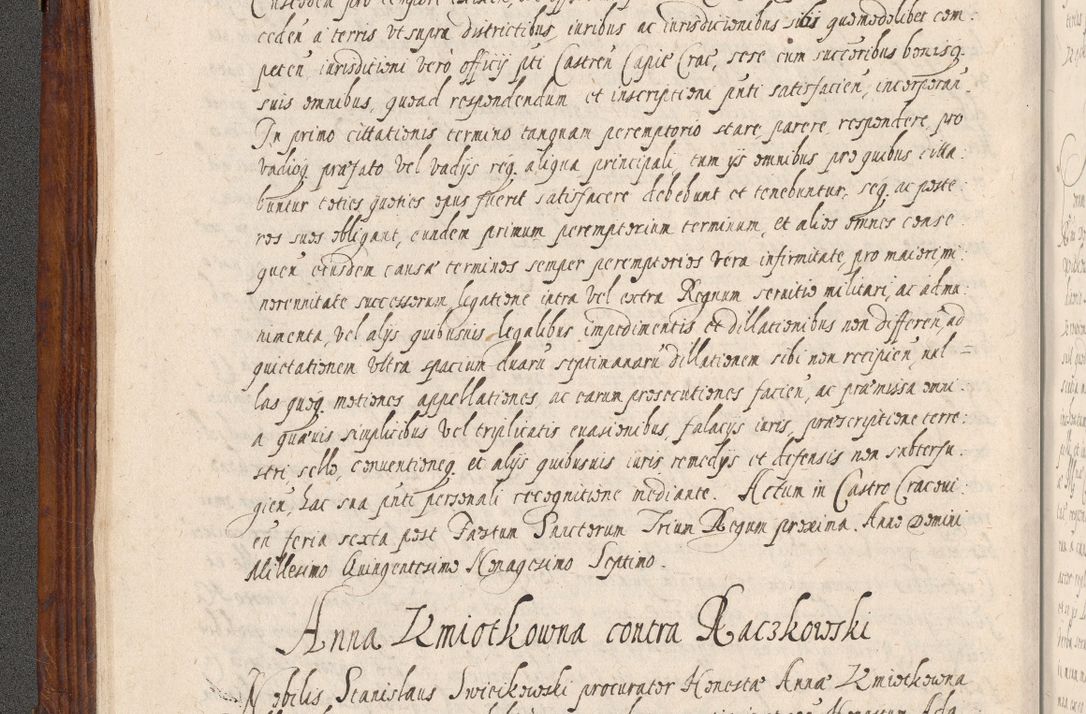 ceden a terris vt supra districtibus, iuribus ac iurisdicionibus sibi quomodolibet com
peten, iurisditioni verò officij pnti Castren Capie Crac, sese cum succeſsoribus bonisq
suis omnibus, quoad respondendum et inscriptioni pnti satisfacien, incorporan.
In primo cittationis termino tanquam peremptorio stare, parere, respondere, pro
vadioq præfato vel vadijs req aliqua principali, tum ijs omnibus pro quibus citta
buntur toties quoties opus fuerit satisfacere debebunt et tenebuntur, seq ac poste
ros suos obligant, eundem primum peremptorium terminum, et alios omnes conse
quen eiusdem causæ terminos semper peremptorios vera infirmitate, pro maiori mi
norennitate successorum, legatione intra vel extra Regnum seruitio militari, ac admi
nimenta, vel alijs quibusuis legalibus impedimentis et dillationibus non differen, ad
quietationem vltra spacium duarū septimanarū dillationem sibi non recipien, nul=
las quoq motiones appellationes, ac earum prosecutiones facien, ac præmissa omni
a quæuis simplicibus vel triplicatis euasionibus, falacijs iuris, præscriptione terre
stri, sello, conuentioneq et alijs quibusuis iuris remedijs et defensis non subterfu
gien, hac sua pnti personali recognitione mediante. Actum in Castro Cracoui
en feria sexta post Festum Sanctorum Trium Regum proxima. Anno Domini
Millesimo Quingentesimo Nonagesimo Septimo.
Anna Zmiotkowna contra Raczkowski
Nobilis Stanislaus Swiecikowski procurator Honestæ Annæ Zmiotkowna